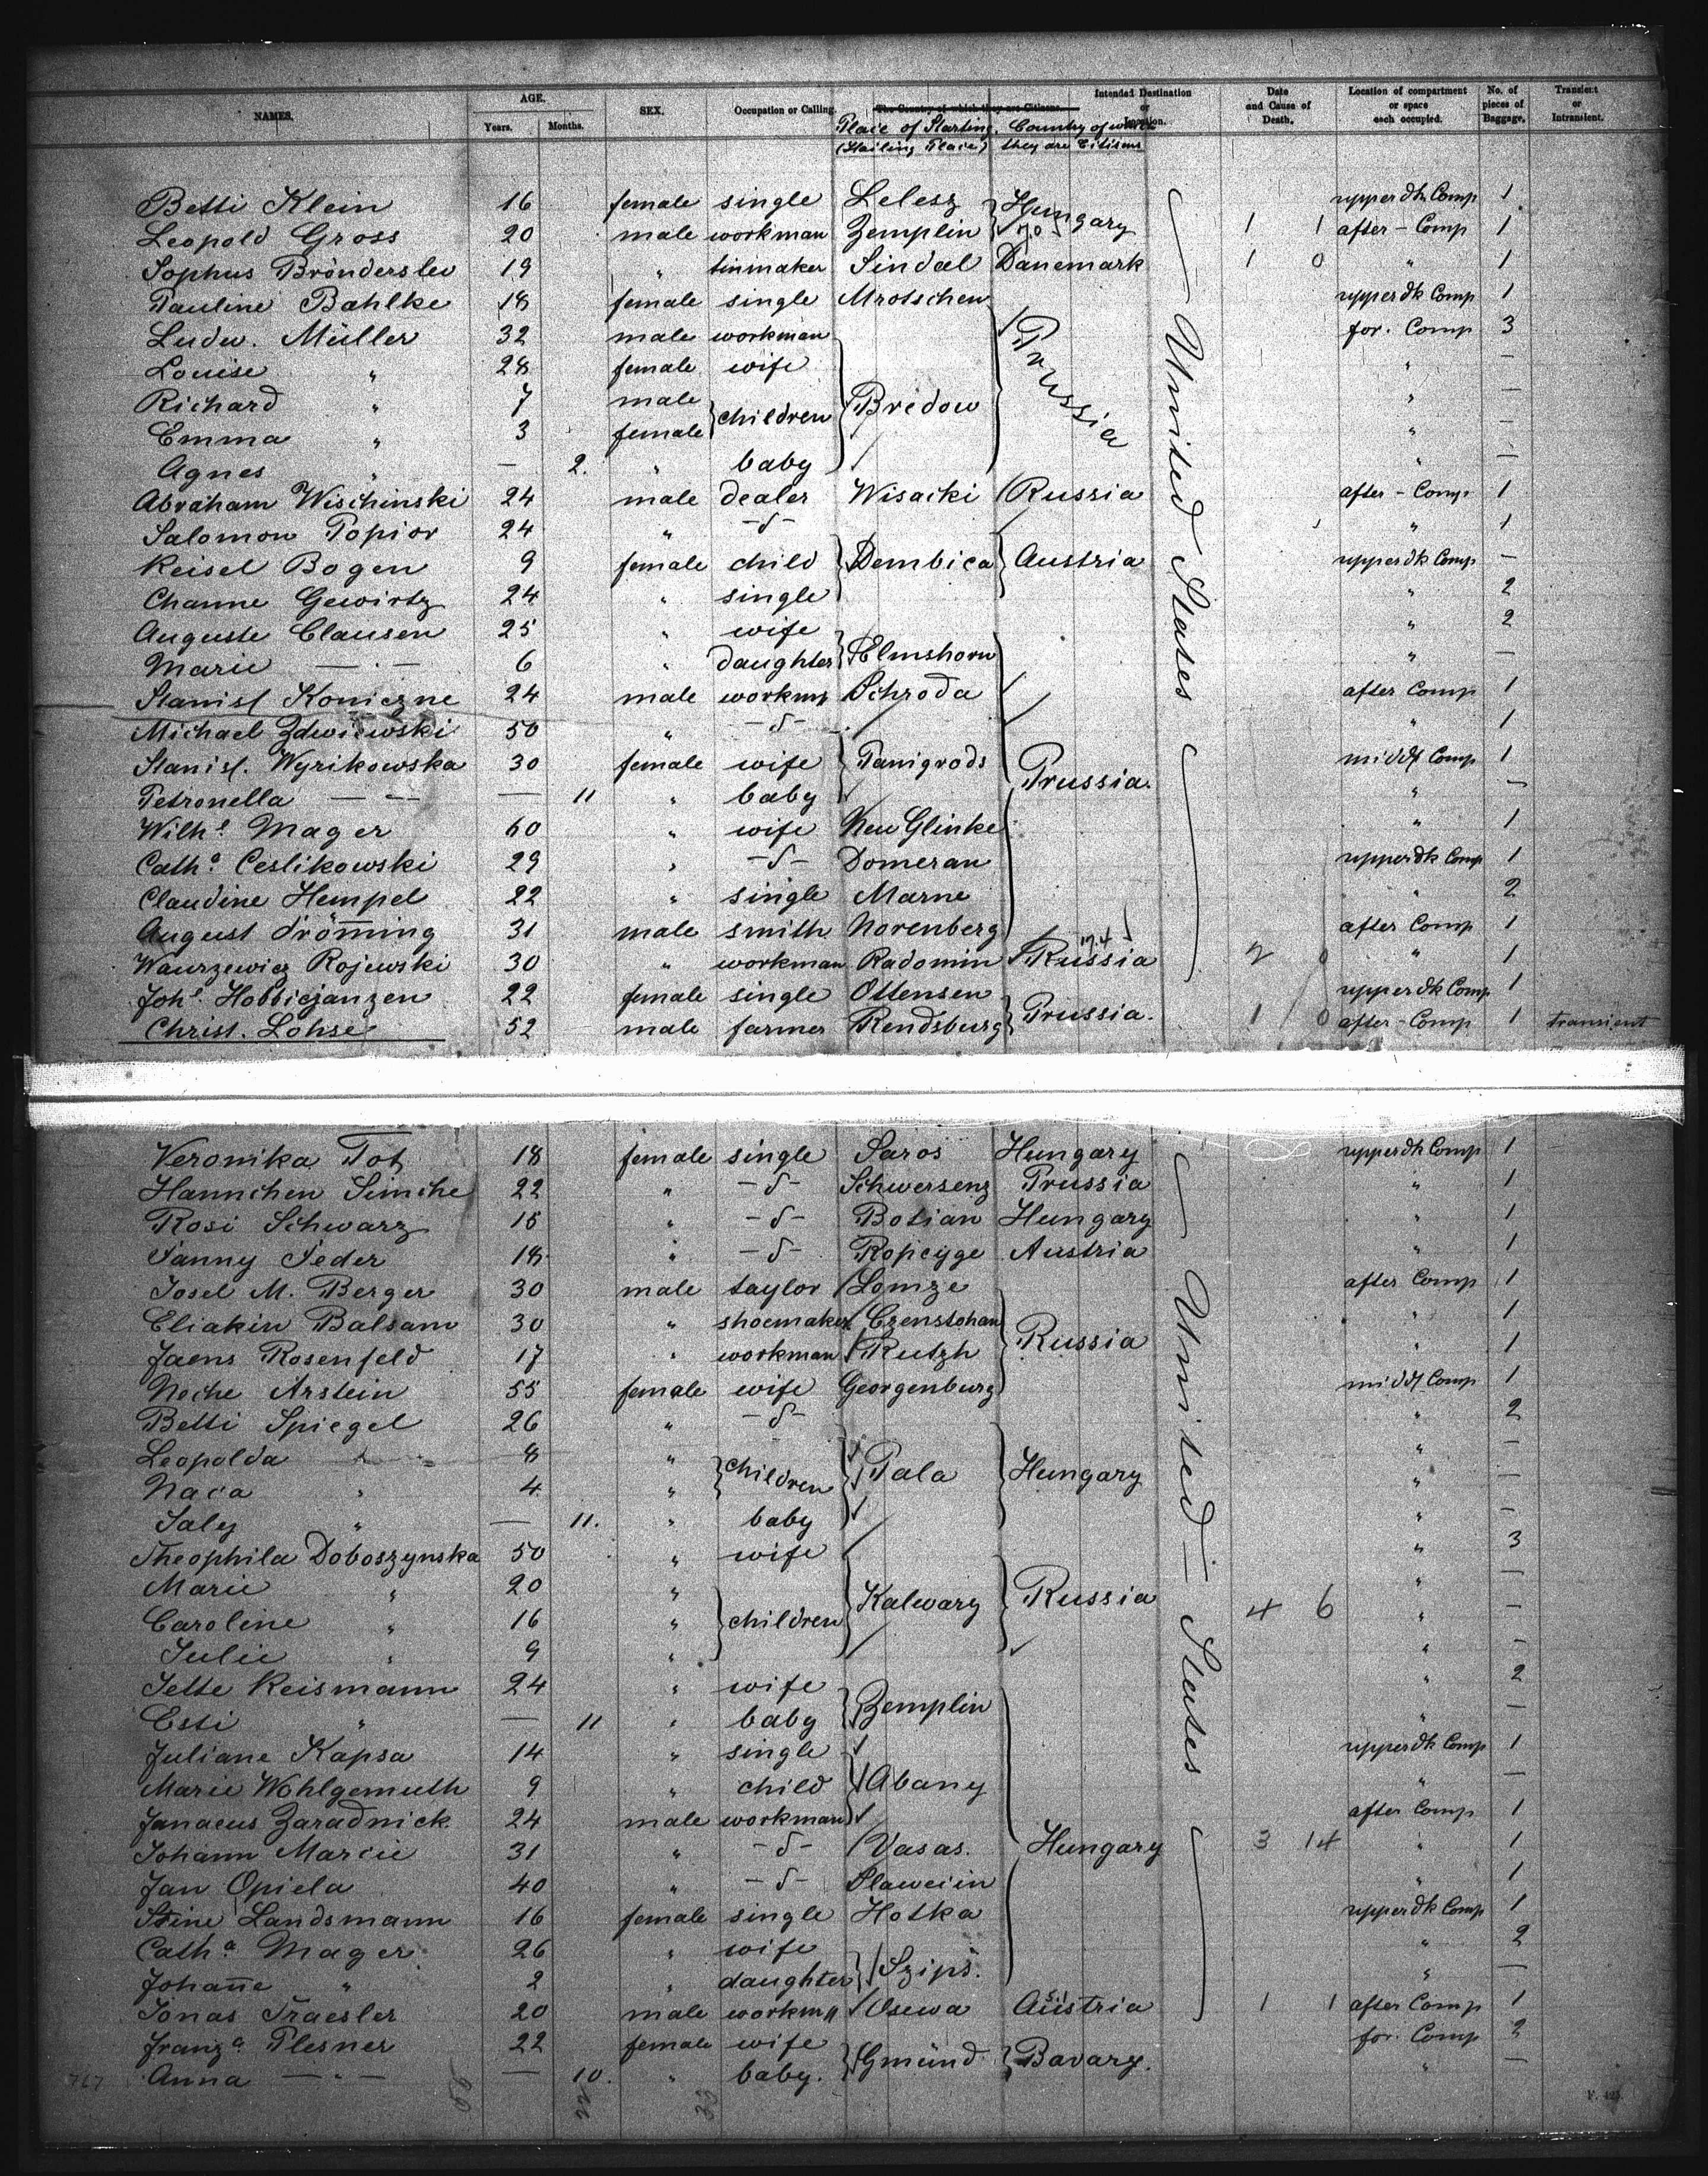 NAMES. AGE. Years. Months. SEX. Occupation or Calling. The Country of which they are Citizens. Intended Destination or Location. Date and Cause of Death. Location of compartment or space each occupied. No. of pieces of Baggage. Transient or Intransient.
Place of Starting. (Stailing Place) Country of which they are Citizens
Betti Klein 16 female single Lelesz Hungary upperdk Comp 1
Leopold Gross 20 male workman Zemplin 1 1 after - Comp 1
Sophus Brönderslev 19 " tinmaker Sindal Danemark 1 0 " 1
Pauline Bahlke 18 female single Mrotschen upperdk Comp 1
Ludw. Müller 32 male workman for. Comp 3
Louise " 28 female wife " —
Richard " 7 male children Bredow Prussia " —
Emma " 3 female " —
Agnes " — 2. " baby " —
Abraham Wischinski 24 male dealer Wisacki Russia after - Comp 1
Salomon Topior 24 " -d- " 1
Reisel Bogen 9 female child Dembica Austria upperdk Comp —
Channe Gewirtz 24 " single " 2
Auguste Clausen 25 " wife " 2
Marie — " — 6 " daughter Elmshorn " —
Stanisl Koniczne 24 male workmn Schroda after Comp 1
Michael Zdwidwski 50 " -d- " 1
Stanisl. Wyrikowska 30 female wife Panigrods Prussia. middl Comp 1
Petronella — " — — 11 " baby " —
Wilh. Mager 60 " wife Neu Glinke " 1
Cath.a Ceslikowski 29 " -d- Domeran upperdk Comp 1
Claudine Hempel 22 " single Marne " 2
August Frömming 31 male smith Norenberg after Comp 1
Waurzewicz Rojewski 30 " workman Radomin Russia 2 0 " 1
Joh. Hobbiejanzen 22 female single Ottensen upperdk Comp 1
Christ. Lohse 52 male farmer Rendsburg Prussia. 1 0 after - Comp 1 transient
United States
Veronika Tot 18 female single Saros Hungary upperdk Comp 1
Hannchen Simche 22 " -d- Schwersenz Prussia " 1
Rosi Schwarz 15 " -d- Botian Hungary " 1
Fanny Feder 18 " -d- Ropcyge Austria " 1
Josel M. Berger 30 male taylor Lomze after Comp 1
Eliakin Balsam 30 " shoemaker Czenstohan " 1
Jaens Rosenfeld 17 " workman Rutzh Russia " 1
Neche Arstein 55 female wife Georgenburg middl Comp 1
Betti Spiegel 26 " -d- " 2
Leopolda " 8 " children Pala Hungary " —
Naca " 4 " " —
Saly " — 11. " baby " —
Theophila Doboszynska 50 " wife " 3
Marie " 20 " children Kalwary Russia " —
Caroline " 16 " 4 6 " —
Julie " 9 " " —
Jette Reismann 24 " wife Zemplin " 2
Esti " — 11 " baby " —
Juliane Kapsa 14 " single upperdk Comp 1
Marie Wohlgemuth 9 " child Abany " —
Janacus Zaradnick. 24 male workman after Comp 1
Johann Marcii 31 " -d- Vasas. Hungary 3 14 " 1
Jan Opiela 40 " -d- Slaweiin " 1
Stine Landsmann 16 female single Hotka upperdk Comp 1
Cath.a Mager 26 " wife Szips. " 2
Johanne " 2 " daughter " —
Jonas Traesler 20 male workmn Osewa Austria 1 1 after Comp 1
Franz.a Plesner 22 female wife Gmünd Bavary. for. Comp 2
Anna — " — — 10. " baby. " —
United - States
767 56 22 33